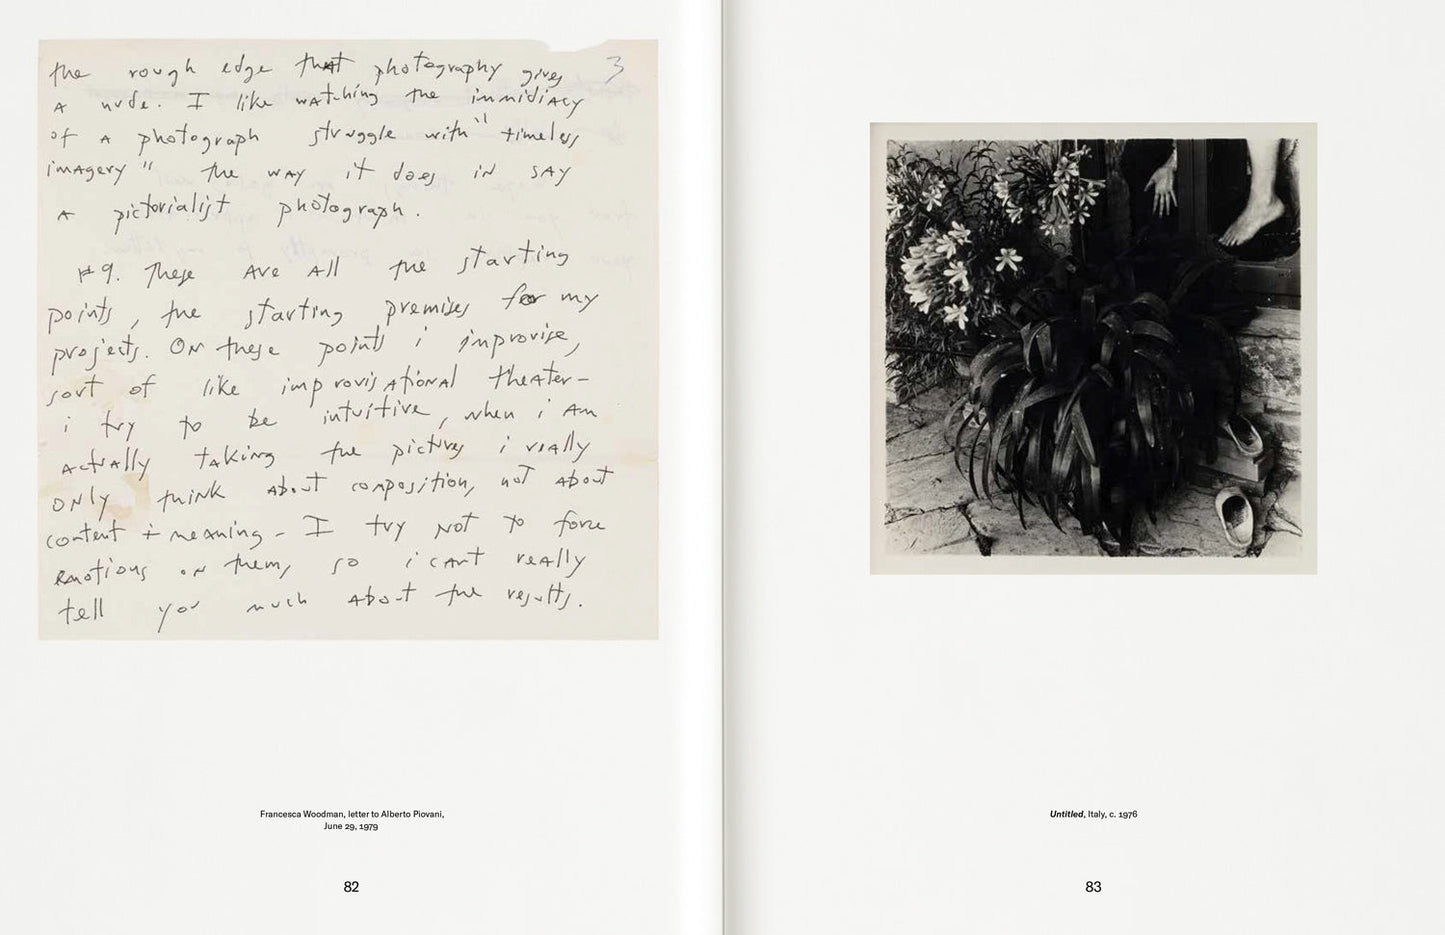 3
the rough edge that photography gives
A nude. I like watching the immidiacy
of A photograph struggle with "timeless
imagery" the way it does in say
A pictorialist photograph.
#9. These are all the starting
points, the starting premises for my
projects. On these points i improvise,
sort of like improvisational theater-
i try to be intuitive, when i am
actually taking the pictures i really
only think about composition, not about
content + meaning - I try not to force
emotions on them, so i cant really
tell you much about the results.
Francesca Woodman, letter to Alberto Piovani,
June 29, 1979
82
Untitled, Italy, c. 1976
83